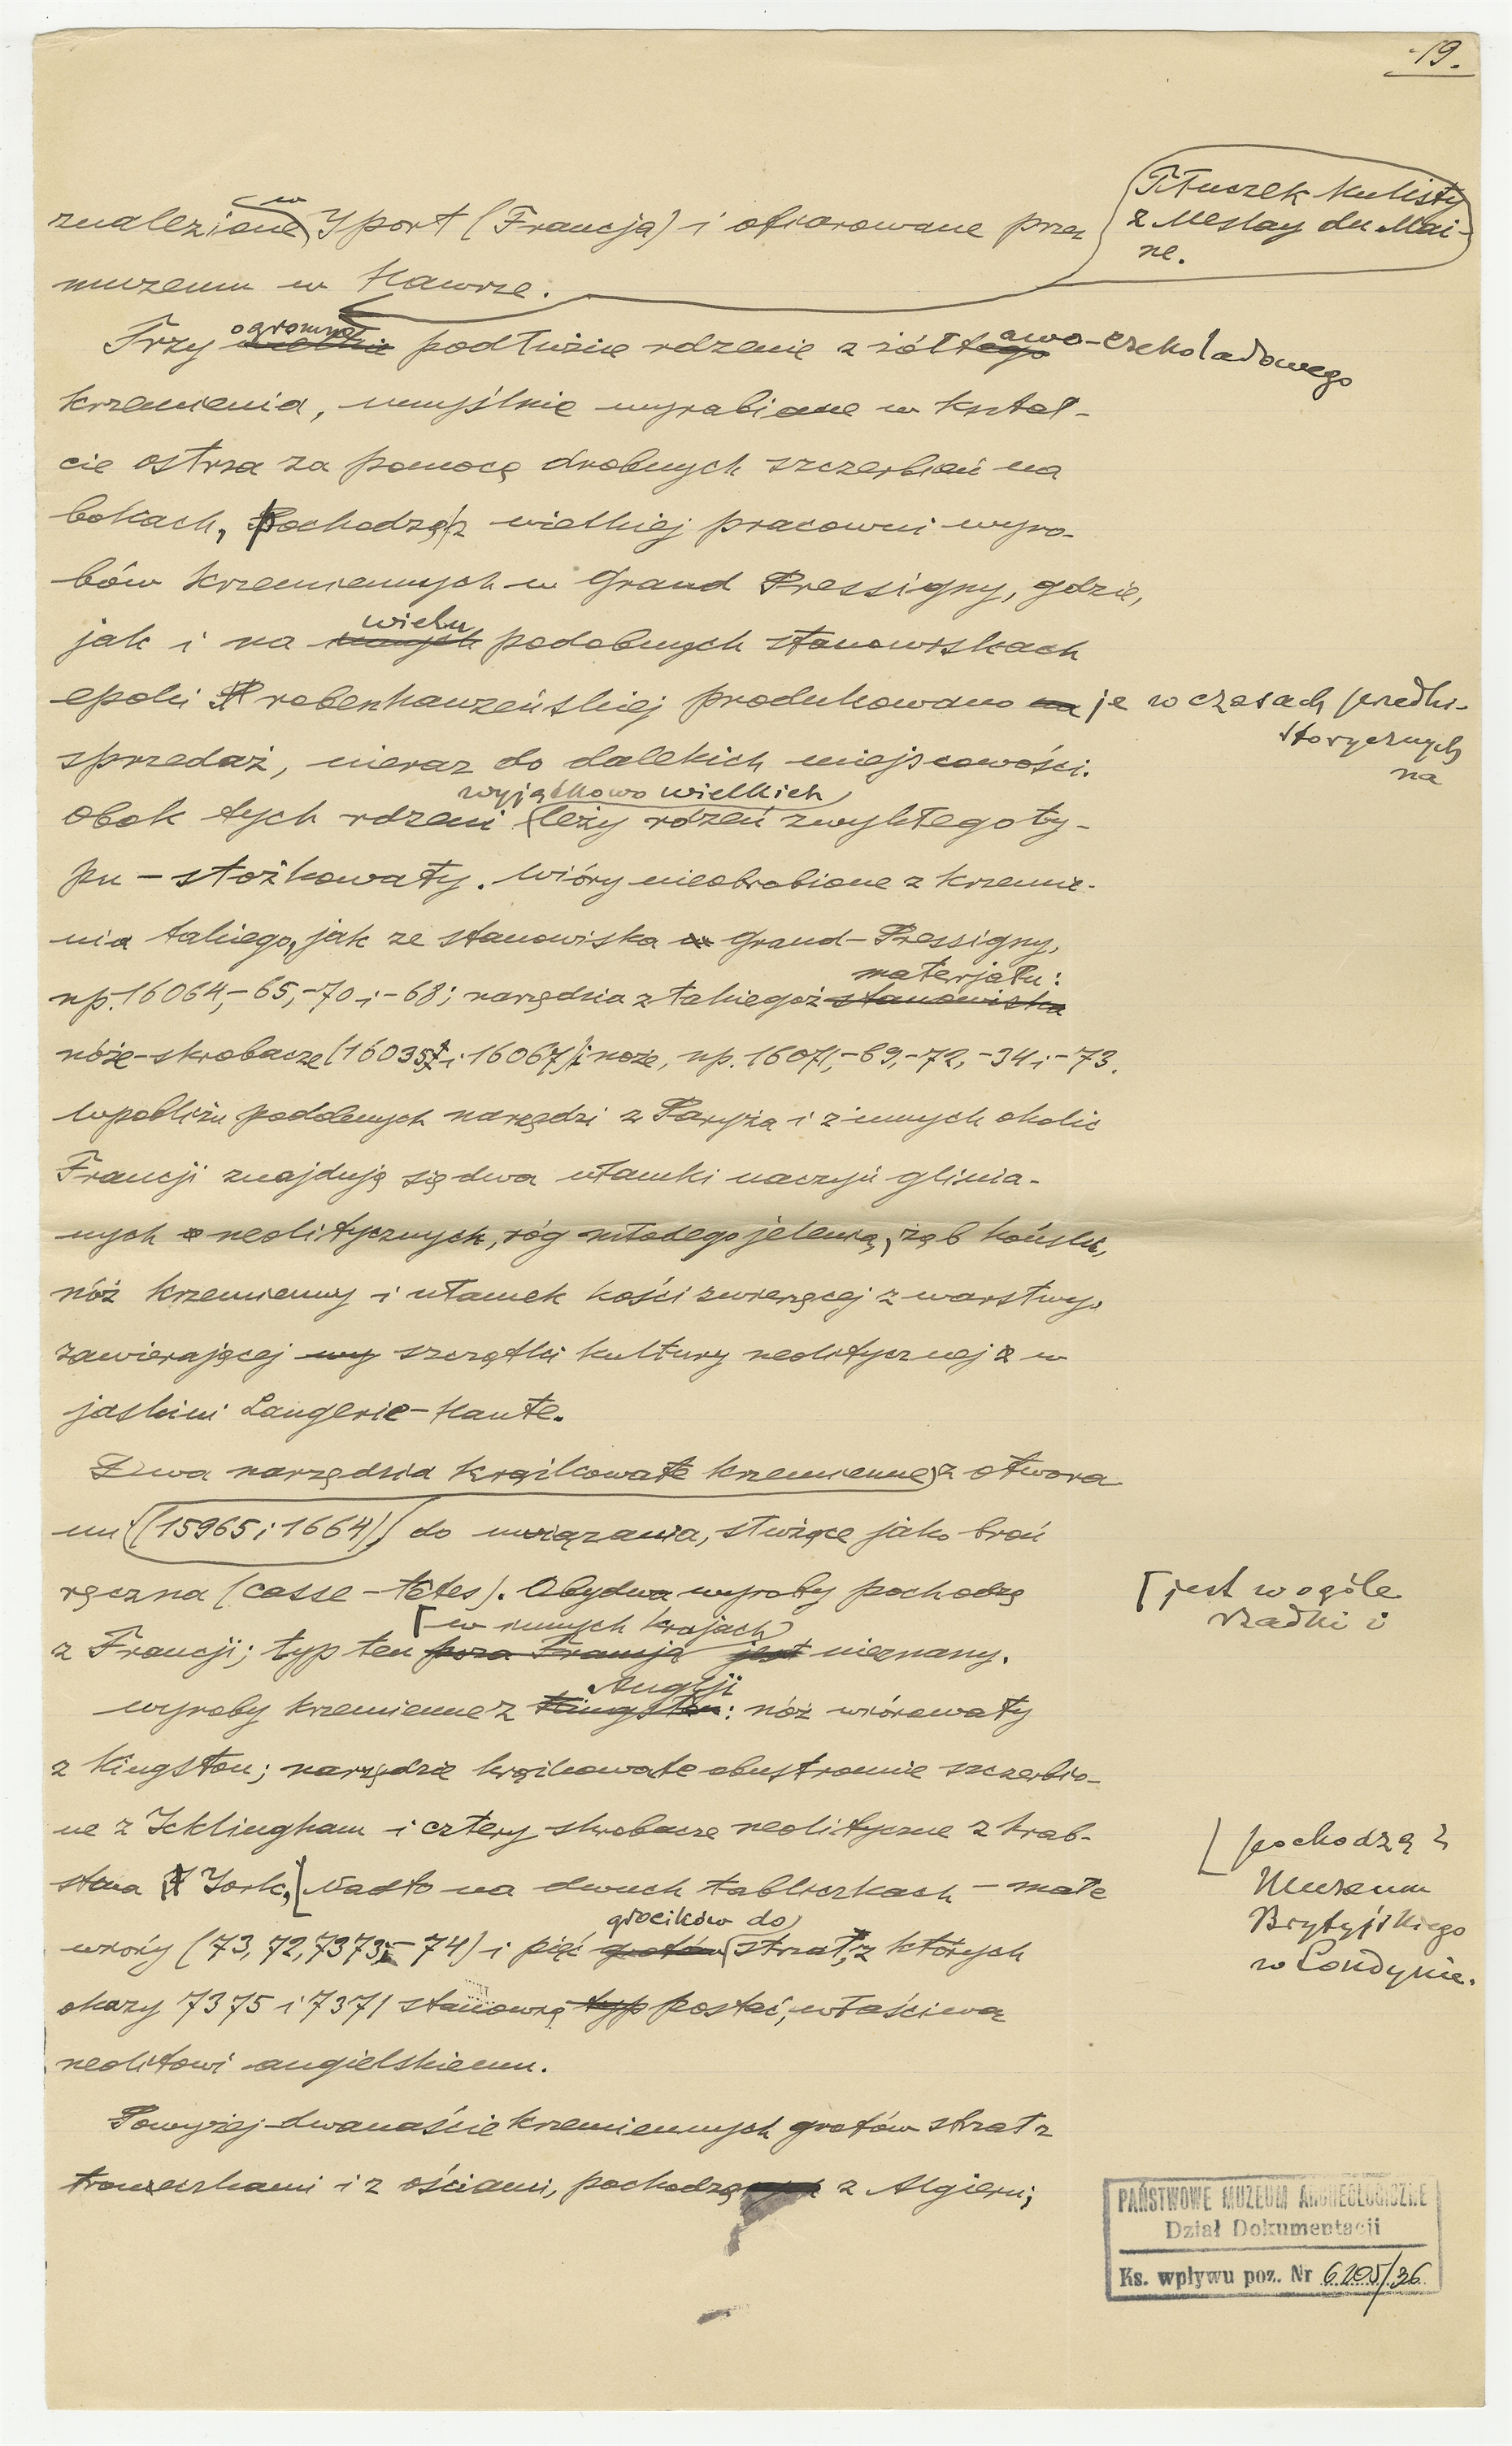 19.
Tłuczek kulisty
z Meslay du Mai-
ne.
znalezione w Yport (Francja) i ofiarowane przez
muzeum w Hawrze.
Trzy ogromne podłużne rdzenie z żółtawo-czekoladowego
krzemienia, umyślnie wyrabiane w kształ-
cie ostrza za pomocą drobnych szczerbień na
bokach, pochodzą z wielkiej pracowni wyro-
bów krzemiennych w Grand Pressigny, gdzie,
jak i na wielu podobnych stanowiskach
epoki robenhauzeńskiej produkowano je w czasach przedhi-
storycznych
na
sprzedaż, nieraz do dalekich miejscowości.
Obok tych rdzeni wyjątkowo wielkich leży rdzeń zwykłego ty-
pu - stożkowaty. Wióry nieobrobione z krzemie-
nia takiego, jak ze stanowiska Grand-Pressigny,
np. 16064, -65, -70 i -68; narzędzia z takiegoż materjału:
noże-skrobacze (16035 i 16067) i noże, np. 16071, -69, -72, -34 i -73.
Wpobliżu podobnych narzędzi z Paryża i z innych okolic
Francji znajdują się dwa ułamki naczyń glinia-
nych neolitycznych, róg młodego jelenia, ząb koński,
nóż krzemienny i ułamek kości zwierzęcej z warstwy,
zawierającej szczątki kultury neolitycznej w
jaskini Laugerie-Haute.
Dwa narzędzia krążkowate krzemienne z otwora
mi (15965 i 1664) do uwiązania, służące jako broń
ręczna (casse-têtes). Obydwa wyroby pochodzą
z Francji; typ ten [jest wogóle
rzadki i
w innych krajach nieznany.
Wyroby krzemienne z Anglji: nóż wiórowaty
z Kingston; narzędzie krążkowate obustronnie szczerbio-
ne z Icklingham i cztery skrobacze neolityczne z hrab-
stwa York, [pochodzą z
Muzeum
Brytyjskiego
w Londynie.
Nadto na dwuch tabliczkach - małe
wióry (73, 72, 7373, -74) i pięć grocików do strzał, z których
okazy 7375 i 7371 stanowią postać, właściwą
neolitowi angielskiemu.
Powyżej dwanaście krzemiennych grotów strzał z
trzoneczkami i z ościami, pochodzą z Algieru;
PAŃSTWOWE MUZEUM ARCHEOLOGICZNE
Dział Dokumentacji
Ks. wpływu poz. Nr 6205/36